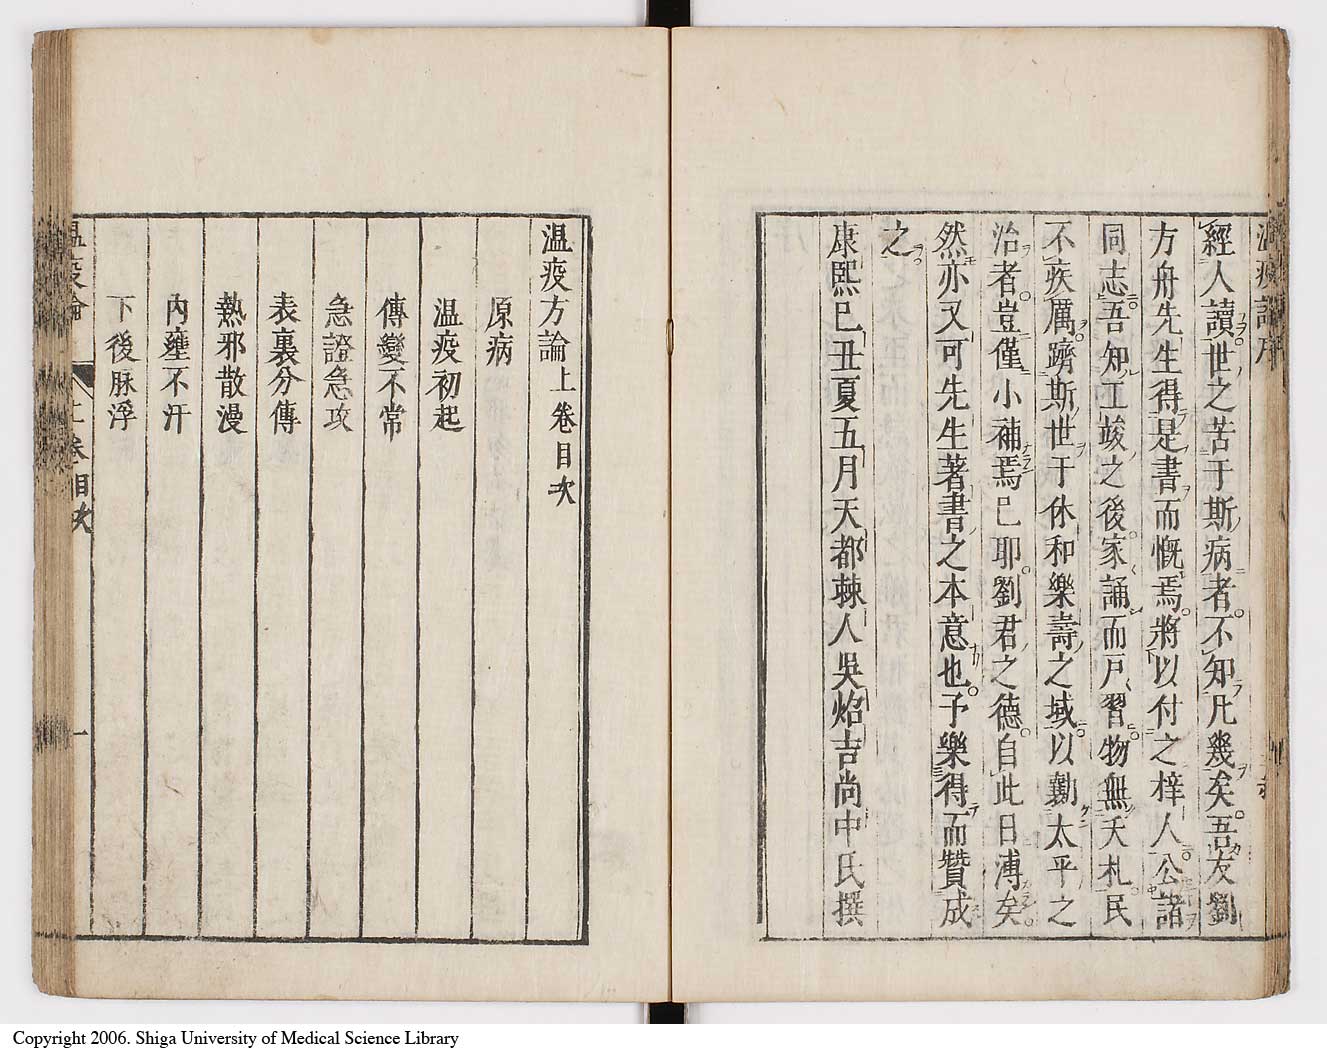 經人讀世之苦于斯病者不知凡幾矣吾友劉
方舟先生得是書而慨焉將以付之梓人公諸
同志吾知工竣之後家誦而戶習物無夭札民
不疾厲躋斯世于休和樂壽之域以勷太平之
治者豈僅小補焉已耶劉君之德自此日溥矣
然亦又可先生著書之本意也予樂得而贊成
之
康熙己丑夏五月天都棘人吳炤吉尚中氏撰
温疫方論上卷目次
原病
温疫初起
傳變不常
急證急攻
表裏分傳
熱邪散漫
內壅不汗
下後脉浮
温疫論 上卷目次 一
Copyright 2006. Shiga University of Medical Science Library